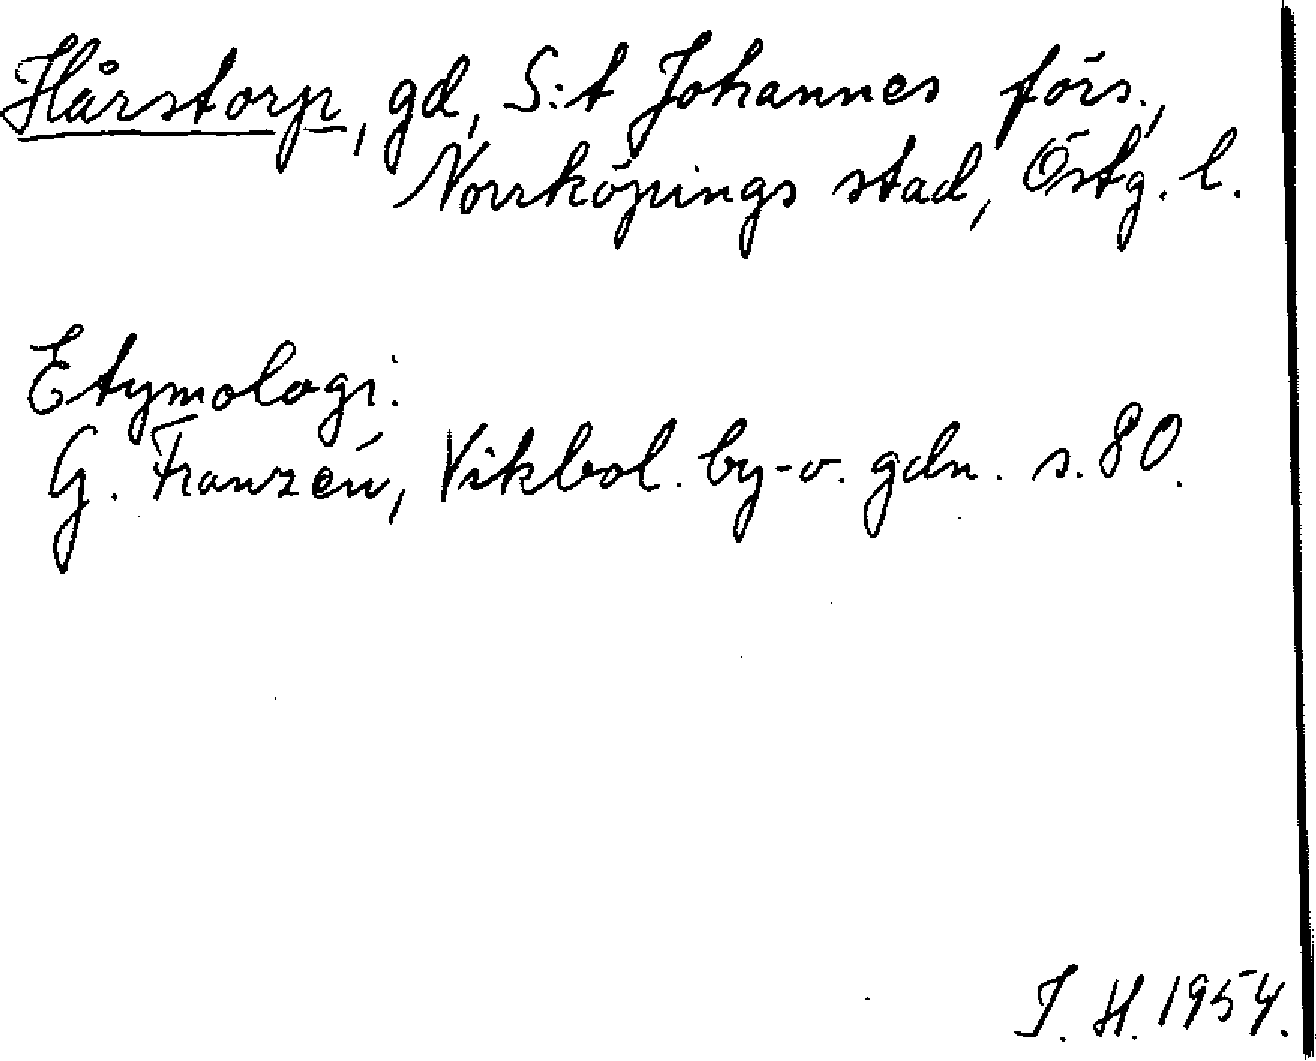 Hårstorp, gd, S:t Johannes förs.,
Norrköpings stad, Östg. l.
Etymologi:
G. Franzén, Vikbol. by- o. gdn. s. 80.
I. H. 1954.